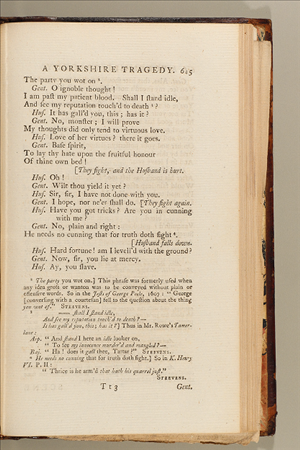 A YORKSHIRE TRAGEDY. 625
The party you wot on ⁴.
Gent. O ignoble thought!
I am past my patient blood. Shall I stand idle,
And see my reputation touch'd to death ⁵?
Hus. It has gall'd you, this; has it?
Gent. No, monster; I will prove
My thoughts did only tend to virtuous love.
Hus. Love of her virtues? there it goes.
Gent. Base spirit,
To lay thy hate upon the fruitful honour
Of thine own bed!
[They fight, and the Husband is hurt.
Hus. Oh!
Gent. Wilt thou yield it yet?
Hus. Sir, sir, I have not done with you.
Gent. I hope, nor ne'er shall do. [They fight again.
Hus. Have you got tricks? Are you in cunning
with me?
Gent. No, plain and right:
He needs no cunning that for truth doth fight ⁶.
[Husband falls down.
Hus. Hard fortune! am I levell'd with the ground?
Gent. Now, sir, you lie at mercy.
Hus. Ay, you slave.
⁴ The party you wot on.] This phrase was formerly used when
any idea gross or wanton was to be conveyed without plain or
offensive words. So in the Jests of George Peele, 1607: "George
[conversing with a courtesan] fell to the question about the thing
you wot of." STEEVENS.
⁵ —— shall I stand idle,
And see my reputation touch'd to death?—
It has gall'd you, this; has it?] Thus in Mr. Rowe's Tamer-
lane:
"And stand I here an idle looker on,
"To see my innocence murder'd and mangled?—
"Ha! does it gall thee, Tartar?" STEEVENS.
⁶ He needs no cunning that for truth doth fight.] So in K. Henry
VI. P. II:
"Thrice is he arm'd that hath his quarrel just."
STEEVENS.
T t 3 Gent.